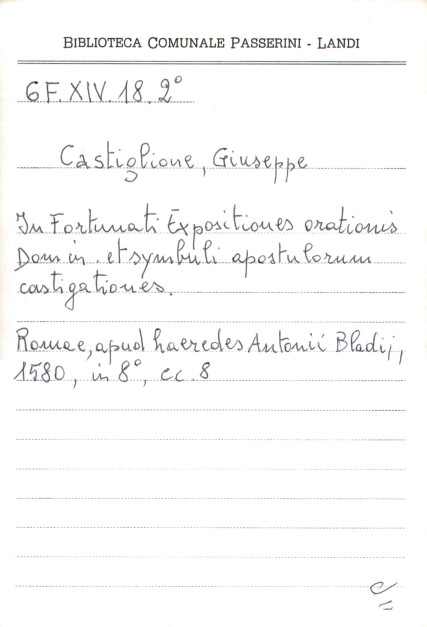 BIBLIOTECA COMUNALE PASSERINI - LANDI
6F.XIV.18.2°
Castiglione, Giuseppe
In Fortunati Expositiones orationis
Domin. et symbuli apostulorum
castigationes.
Romae, apud haeredes Antonii Bladij,
1580, in 8°, cc. 8